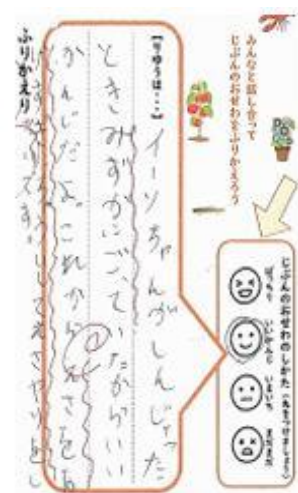 みんなと話し合って
じぶんのおせわをふりかえろう
じぶんのおせわのしかた(えをつけましょう)
ばっちり
いいかんじ
いまいち
まだまだ
【りゆうは・・・】
イーソちゃんがしんじゃった
ときみずがにごっていたからいい
かんじだよ。これからえさをあ
ふりかえり